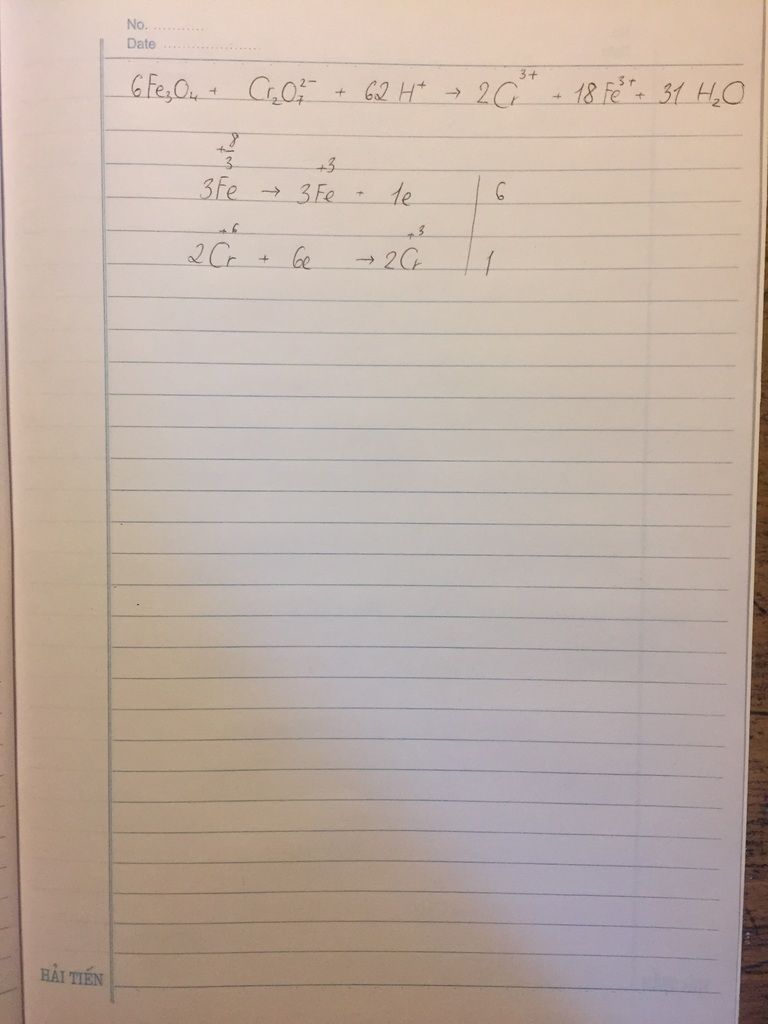 No. ...........
Date .....................
6Fe₃O₄ + Cr₂O₇²⁻ + 62 H⁺ → 2Cr³⁺ + 18 Fe³⁺ + 31 H₂O
+8/3 +3
3Fe → 3Fe + 1e | 6
+6 +3
2Cr + 6e → 2Cr | 1
HẢI TIẾN